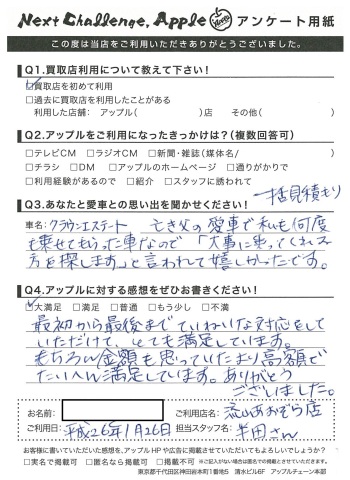 Next Challenge, Apple アンケート用紙
この度は当店をご利用いただきありがとうございました。
Q1.買取店利用について教えて下さい!
☑買取店を初めて利用
□過去に買取店を利用したことがある
利用した店舗: アップル( )店 その他( )
Q2.アップルをご利用になったきっかけは?(複数回答可)
□テレビCM □ラジオCM □新聞・雑誌(媒体名/ )
□チラシ □DM □アップルのホームページ □通りがかりで
□利用経験があるので □紹介 □スタッフに誘われて
一括見積もり
Q3.あなたと愛車との思い出を聞かせください!
車名:クラウンエステート 亡き父の愛車で私も何度
も乗せてもらった車なので「大事に乗ってくれる
方を探します」と言われて嬉しかったです。
Q4.アップルに対する感想をぜひお書きください!
☑大満足 □満足 □普通 □もう少し □不満
最初から最後までていねいな対応をして
いただけて、とても満足しています。
もちろん金額も思っていたより高額で
たいへん満足しています。ありがとう
ございました。
お名前: ご利用店名:流山おおぞら店
ご利用日:平成26年1月26日 担当スタッフ名:半田さん
お客様に書いていただいた感想を、アップルHPや広告に掲載させていただいてもよろしいでしょうか?
□実名で掲載可 □匿名なら掲載可 □掲載不可 ※ご記入がない場合は匿名での掲載とさせていただきます。
東京都千代田区神田岩本町1番地5 清水ビル6F アップルチェーン本部